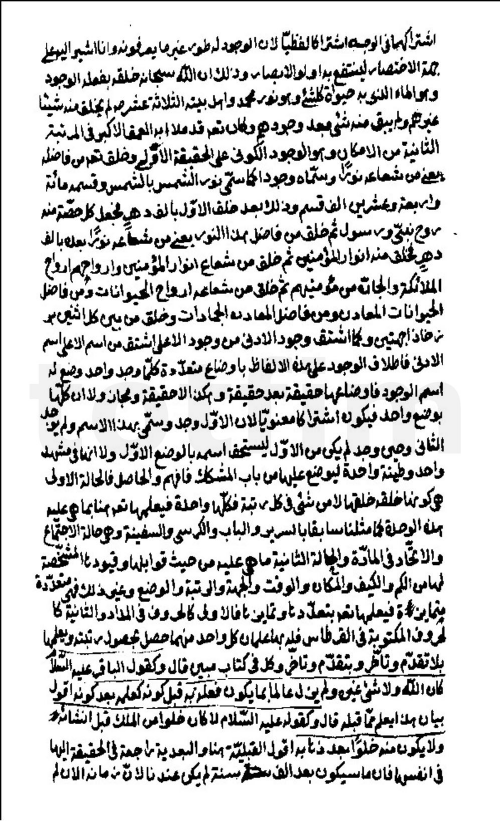 اشتراكهما في الوجه اشتراكا لفظيّا لان الوجود له طور غير ما يعرفونه وانا اشير اليه على
جهة الاختصار لينتفع به اولوا الابصار وذلك ان اللّه سبحانه خلقه بفعله الوجود
وهو الماء الذي به حيوة كلّ شيء وهو نور محمد واهل بيته الثلاثة عشر ص لم يخلق منه شيئا
غيرهم ولم يبق منه شيء بعد وجودهم وكان تعه قد ملأ به العمق الاكبر في المرتبة
الثانية من الامكان وهو الوجود الكوني على الحقيقة الاوّلى وخلق تعه من فاضله
يعني من شعاعه نورًا وسمّاه وجودا كما سمّى نور الشمس بالشمس وقسمه مائة
واربعة وعشرين الف قسم وذلك بعد خلق الاوّل بالف دهر فجعل كل حصّة منه
روح نبيّ ورسول ثم خلق من فاضل هذا النور يعني من شعاعه نورًا بعده بالف
دهر فخلق منه انوار المؤمنين ثم خلق من شعاع انوار المؤمنين وارواحهم ارواح
الملائكة والجانّ من مؤمنيهم ثم خلق من شعاعه ارواح الحيوانات ومن فاضل
الحيوانات المعادن ومن فاضل المعادن الجمادات وخلق من بين كل اثنين بر
زخا ذا جهتين وكما اشتق وجود الادنى من وجود الاعلى اشتق من اسم الاعلى اسم
الادنى فاطلاق الوجود على هذه الالفاظ باوضاع متعدّدة كلّما وجد واحد وضع له
اسم الوجود فاوضاعها حقيقة بعد حقيقة وهكذا لا حقيقة ومجاز ولا ان كلّها
بوضع واحد فيكون اشتراكا معنويّا لان الاول وجد وسمّي بهذا الاسم ولم يوجد
الثاني وحين وجد لم يكن من الاوّل ليستحق اسمه بالوضع الاوّل ولا انهما في مشهد
واحد وطينة واحدة ليوضع عليهما من باب المشكك فافهم والحاصل فالحالة الاولى
هي كونها خلقه خلقها لا من شيء في كل رتبة فكلّها واحدة فيعلمها تعه هنا بما هي عليه
بهذه الوحدة كما مثلنا سابقا بالسرير والباب والكرسي والسفينة وهي حالة الاجتماع
والاتّحاد في المادّة والحالة الثانية ما هي عليه من حيث قوابلها وقيودها المشخّصة
لها من الكم والكيف والمكان والوقت والجهة والرتبة والوضع وغير ذلك فهي متعدّدة
متمايزة فيعلمها تعه بتعدّدنا وتمايزنا فالاولى كالحروف في المداد والثانية كا
لحروف المكتوبة في القرطاس فله بهما علمان كل واحد منهما حصل بحصول رتبته ويعلمها
بلا تقدّم وتأخّر وبتقدّم وتأخّر وكل في كتاب مبين قال وكقول الباقر عليه السّلام
كان اللّه ولا شيء غيره ولم يزل عالما بما يكون فعلمه به قبل كونه كعلمه بعد كونه اقول
بيان هذا يعلم ممّا قبله قال وكقوله عليه السّلام لا كان خلوا من الملك قبل انشائه
ولا يكون منه خلوًا بعد ذهابه اقول القبليّة هنا والبعدية راجعة في الحقيقة اليها
في انفسها فان ما سيكون بعد الف سنة لم يكن عندنا لان زمانه الان لم